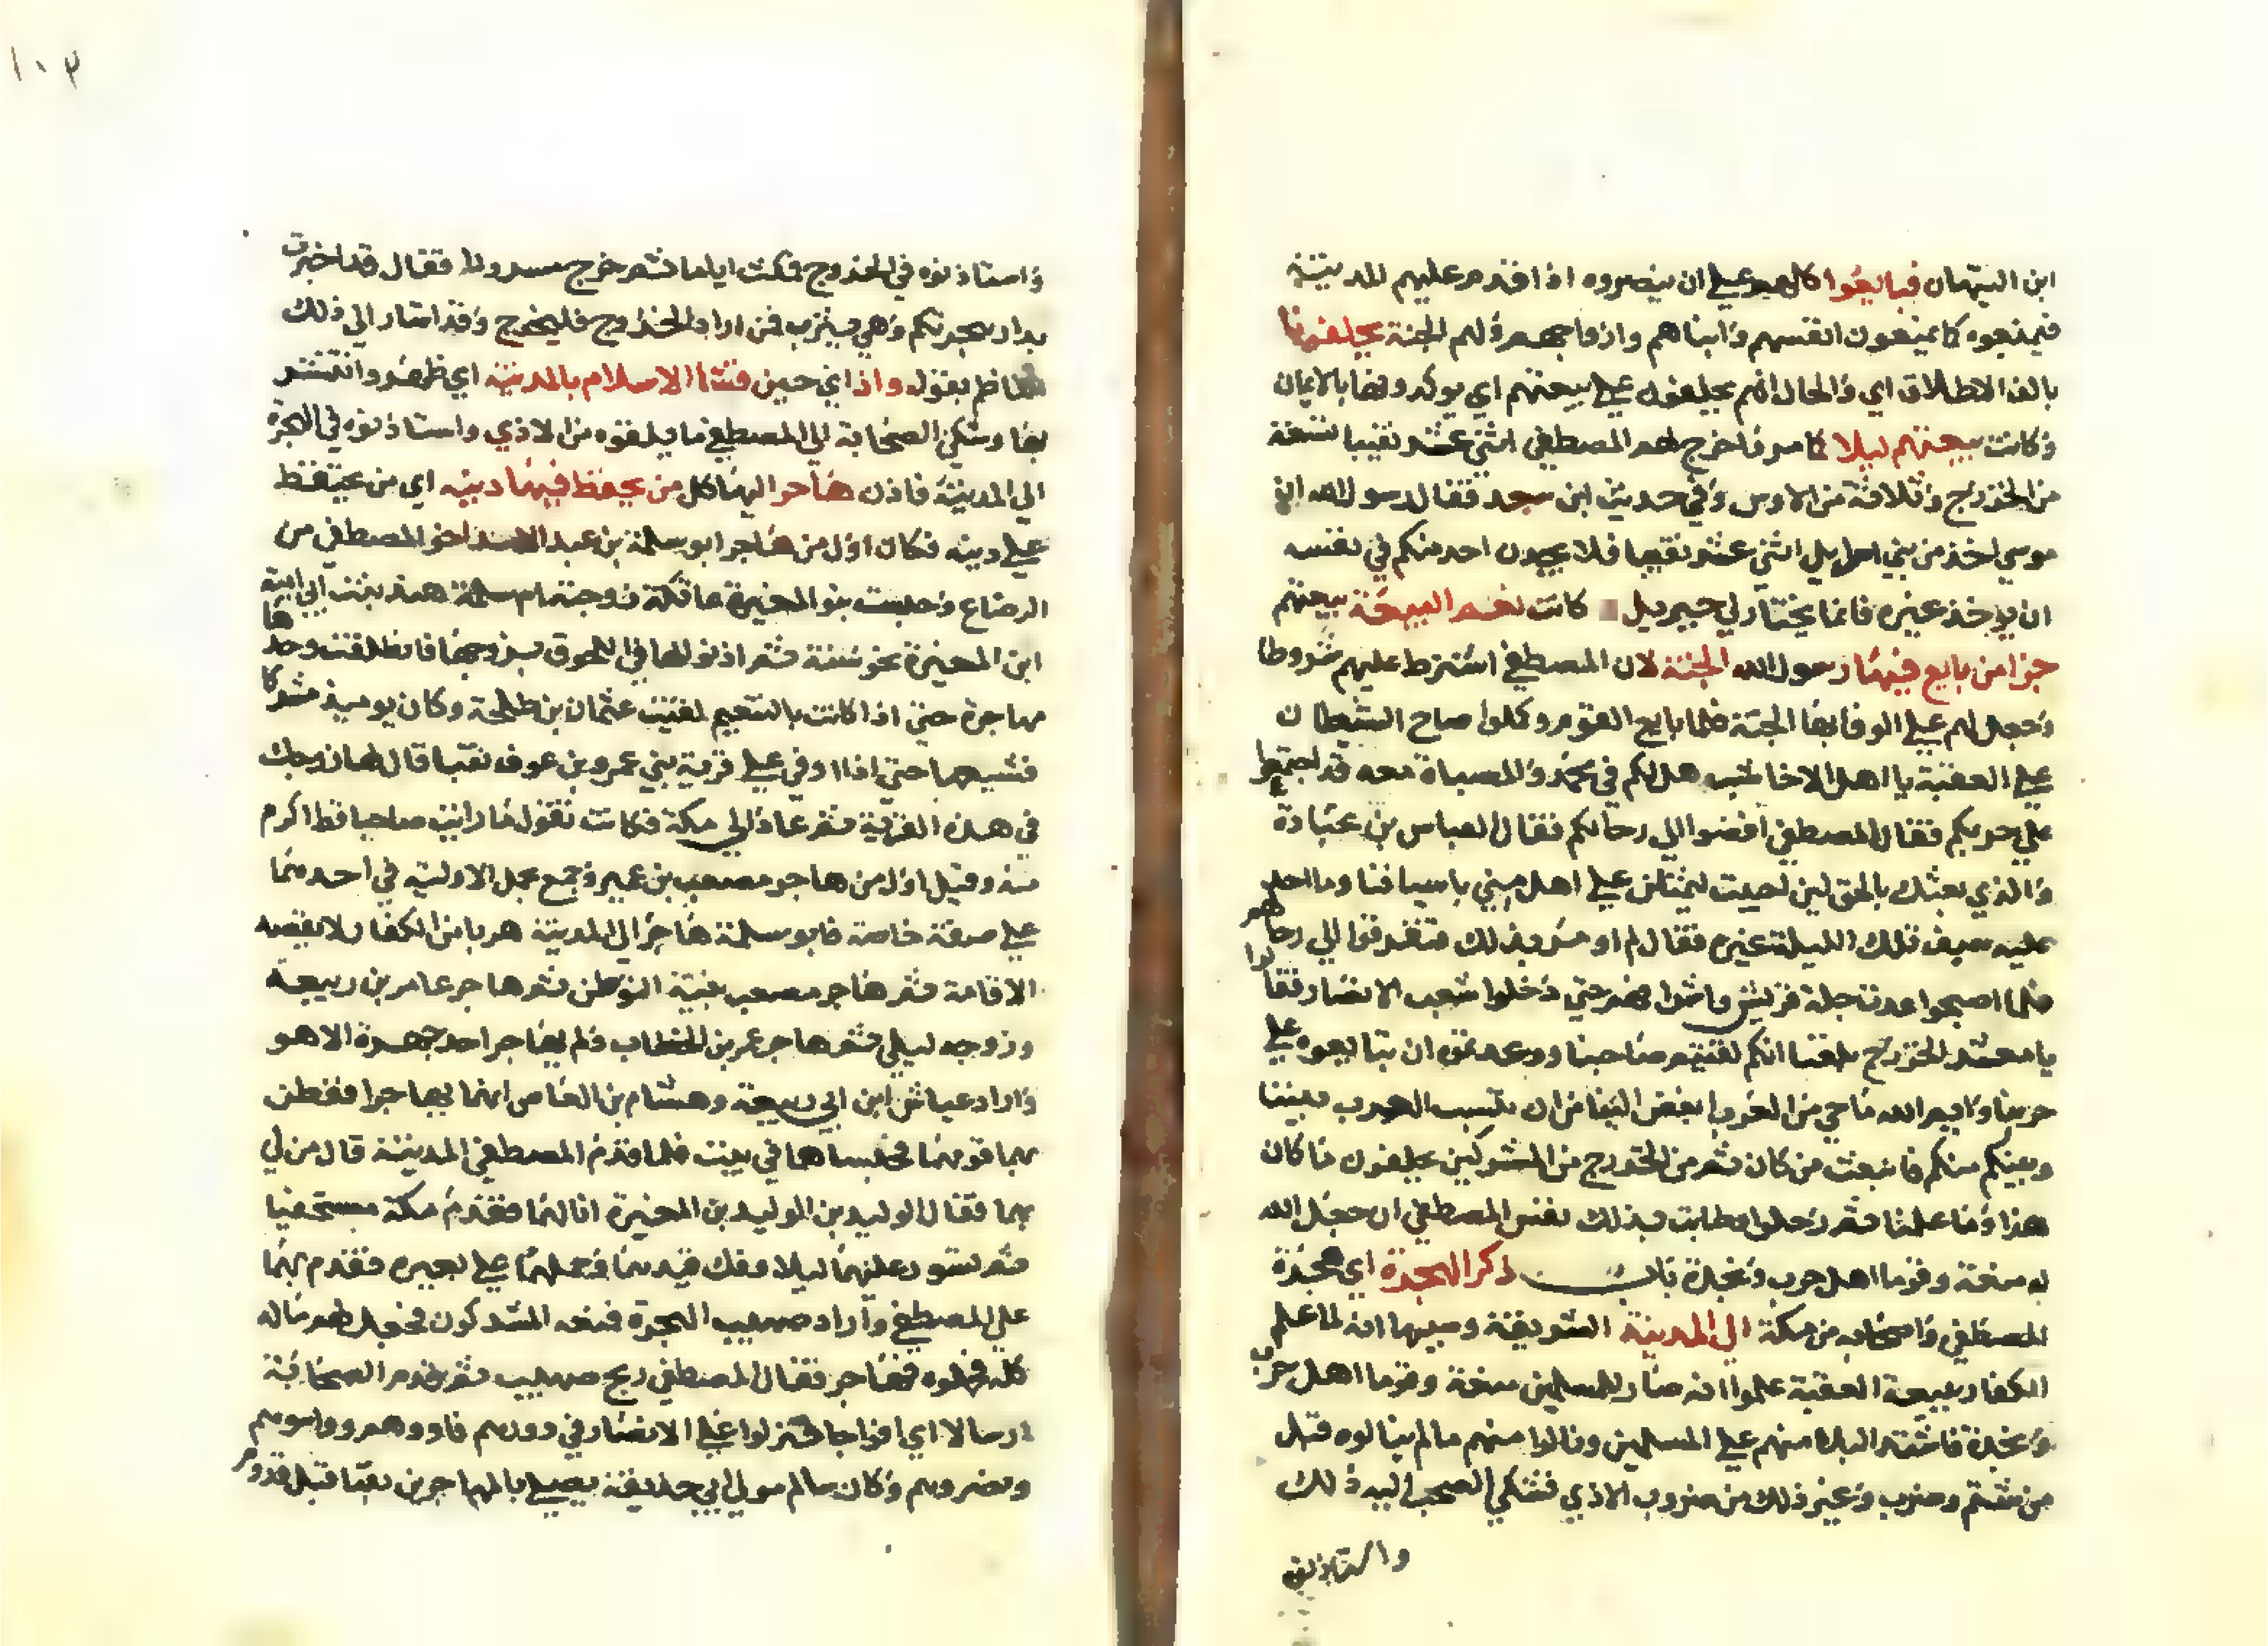 ابن التيهان فبايعوا كلهم علي ان ينصروه اذا قدم عليهم المدينة
فيمنعوه كما يمنعون انفسهم وابناهم وازواجهم ولهم الجنة يحلفونا
بالف الاطلاق اي والحال انهم يحلفون علي بيعتهم اي يوكدونها بالايمان
وكانت بيعتهم ليلا كما مر فاخرج لهم المصطفي اثني عشر نقيبا تسعة
من الخزرج وثلاثة من الاوس وفي حديث ابن سعد فقال رسول الله ان
موسي اخذ من بني اسرائيل اثني عشر نقيبا فلا يجدن احد منكم في نفسه
ان يوخذ غيره فانما يختار لي جبريل كانت نعم البيعة بيعتهم
جزا من بايع فيها رسول الله الجنة لان المصطفي اشترط عليهم شروطا
وجعل لهم علي الوفا بها الجنة فلما بايع القوم وكملوا صاح الشيطان
علي العقبة يا اهل الاخاشب هل لكم في محمد والصباة معه قد اجتمعوا
علي حربكم فقال المصطفي انفضوا الي رحالكم فقال العباس بن عبادة
والذي بعثك بالحق لين احببت لنميلن علي اهل مني باسيافنا وما احد
عليه سيف تلك الليلة غيره فقال لم اومر بذلك فتفرقوا الي رحالهم
فلما اصبحوا غدت جلة قريش واشرافهم حتي دخلوا شعب الانصار فقالوا
يا معشر الخزرج بلغنا انكم لقيتم صاحبنا ووعدتموه ان تبايعوه علي
حربنا وايم الله ما حي من العرب ابغض الينا من ان تنشب الحرب بيننا
وبينكم منكم فانبعث من كان ثم من الخزرج من المشركين يحلفون ما كان
هذا وما علمنا ثم رحلوا وطابت بذلك نفس المصطفي ان جعل الله
له منعة وقوما اهل حرب ونجدة باب ذكر الهجرة اي هجرة
المصطفي واصحابه من مكة الي المدينة الشريفة وسببها انه لما علم
الكفار ببيعة العقبة علموا انه صار للمسلمين منعة وقوما اهل حرب
ونجدة فاشتد البلا منهم علي المسلمين ونالوا منهم ما لم ينالوه قبل
من شتم وضرب وغير ذلك من ضروب الاذي فشكي الصحب اليه ذلك
واستاذنوه
١٠٢
واستاذنوه في الخروج فمكث اياما ثم خرج مسرورا فقال قد اخبرت
بدار هجرتكم وهي يثرب فمن اراد الخروج فليخرج وقد اشار الي ذلك
الناظم بقوله واذ اي حين فشا الاسلام بالمدينة اي ظهر وانتشر
بها وشكي الصحابة الي المصطفي ما يلقوه من الاذي واستاذنوه في الهجرة
الي المدينة فاذن هاجر اليها كل من يحفظ فيها دينه اي من يحتفظ
علي دينه فكان اول من هاجر ابو سلمة بن عبد الاسد اخو المصطفي من
الرضاع وحبست بنو المغيرة عاتكة زوجته ام سلمة هند بنت ابي امية
ابن المغيرة نحو سنة ثم اذنوا لها في اللحوق بزوجها فانطلقت وحدها
مهاجرة حتي اذا كانت بالتنعيم لقيت عثمان بن طلحة وكان يوميذ مشركا
فشيعها حتي اذا اوفي علي قرية بني عمرو بن عوف بقبا قال لها زوجك
في هذه القرية ثم عاد الي مكة فكانت تقول ما رايت صاحبا قط اكرم
منه وقيل اول من هاجر مصعب بن عمير وجمع بحمل الاولية في احدهما
علي صفة خاصة فابو سلمة هاجر الي المدينة هربا من الكفار لا بقصد
الاقامة ثم هاجر مصعب بنية التوطن ثم هاجر عامر بن ربيعة
وزوجه ليلي ثم هاجر عمر بن الخطاب ولم يهاجر احد جهرة الا هو
واراد عياش ابن ابي ربيعة وهشام بن العاص ايضا يهاجرا ففطن
بهما قومهما فحبساهما في بيت فلما قدم المصطفي المدينة قال من لي
بهما فقال الوليد بن الوليد بن المغيرة انا لهما فقدم مكة مستخفيا
ثم تسور عليهما ليلا وفك قيدهما وحملهما علي بعيره فقدم بهما
علي المصطفي واراد صهيب الهجرة فمنعه المشركون فجعل لهم ماله
كله فخلوه فهاجر فقال المصطفي ربح صهيب ثم قدم الصحابة
ارسالا اي افواجا فنزلوا علي الانصار في دورهم فاووهم وواسوهم
ونصروهم وكان سالم مولي ابي حذيفة يصلي بالمهاجرين بقبا قبل قدوم